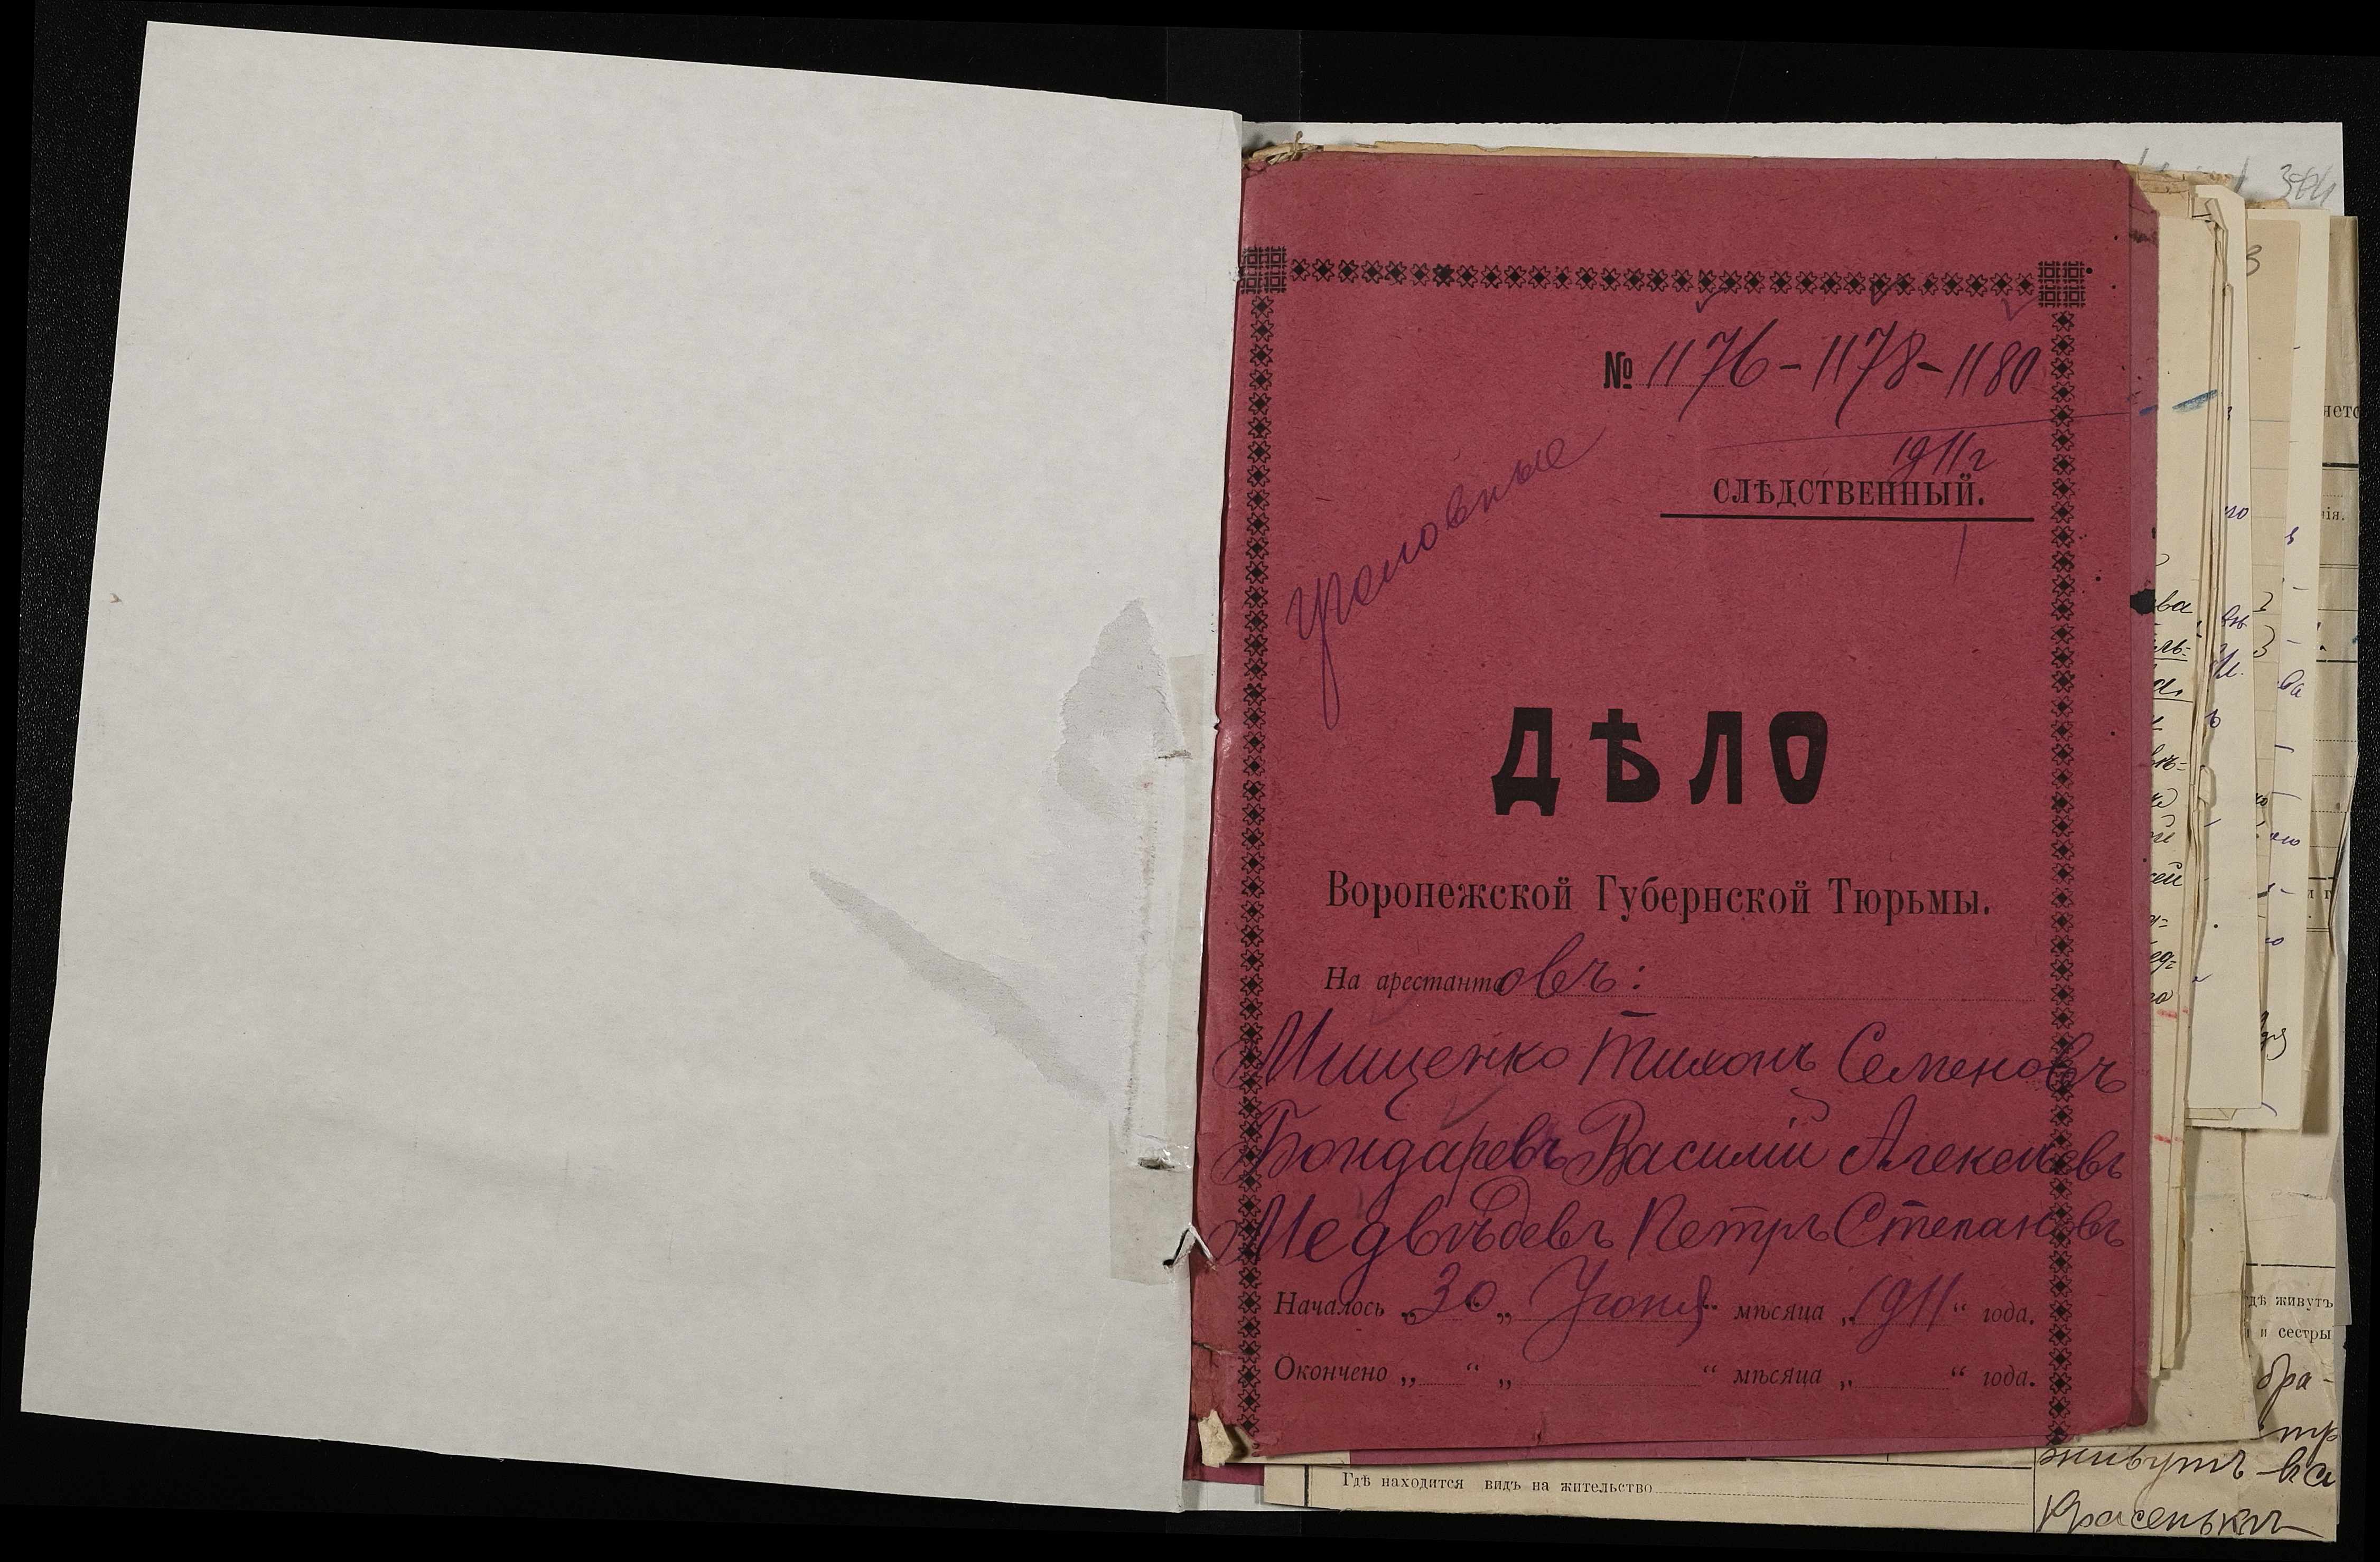 № 1176-1178-1180
1911 г
СЛѢДСТВЕННЫЙ.
уголовные
ДѢЛО
Воронежской Губернской Тюрьмы.
На арестантовъ:
Мищенко Тихонъ Семеновъ
Бондаревъ Василій Алексѣевъ
Медвѣдевъ Петръ Степановъ
Началось „30“ „Іюня“ мѣсяца „1911“ года.
Окончено „ “ „ “ мѣсяца „ “ года.
Гдѣ находится видъ на жительство
дѣ живутъ
и сестры
бра-
живутъ